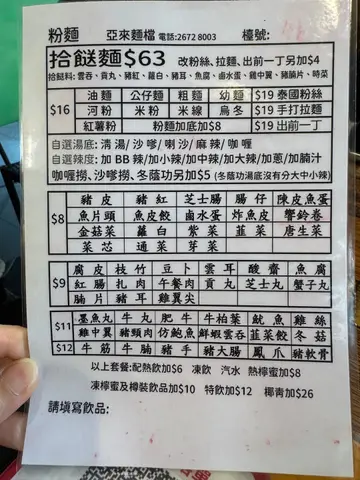 粉麵 亞來麵檔 電話:2672 8003 檯號:
拾餸麵$63 改粉絲、拉麵、出前一丁另加$4
拾餸料: 雲吞、貢丸、豬紅、蘿白、豬耳、魚腐、鹵水蛋、雞中翼、豬腩片、時菜
$16 油麵 公仔麵 粗麵 幼麵 $19 泰國粉絲
河粉 米粉 米線 烏冬 $19 手打拉麵
紅薯粉 粉麵加底加$8 $19 出前一丁
自選湯底: 清湯/沙嗲/喇沙/麻辣/咖喱
自選辣度: 加BB辣/加小辣/加中辣/加大辣/加蔥/加腩汁
咖喱撈、沙嗲撈、冬蔭功另加$5 (冬蔭功湯底沒有分大中小辣)
$8 豬皮 豬紅 芝士腸 腸仔 陳皮魚蛋
魚片頭 魚皮餃 鹵水蛋 炸魚皮 響鈴卷
金菇菜 蘿白 紫菜 韮菜 唐生菜
菜芯 通菜 芽菜
$9 腐皮 枝竹 豆卜 雲耳 酸齋 魚腐
紅腸 扎肉 午餐肉 貢丸 芝士丸 蟹子丸
腩片 豬耳 雞翼尖
$11 墨魚丸 牛丸 肥牛 牛柏葉 魷魚 雞絲
雞中翼 豬頸肉 仿鮑魚 鮮蝦雲吞 韮菜餃 冬菇
$12 牛筋 牛腩 豬手 豬大腸 鳳爪 豬軟骨
以上套餐:配熱飲加$6 凍飲 汽水 熱檸蜜加$8
凍檸蜜及樽裝飲品加$10 特飲加$12 椰青加$26
請填寫飲品: